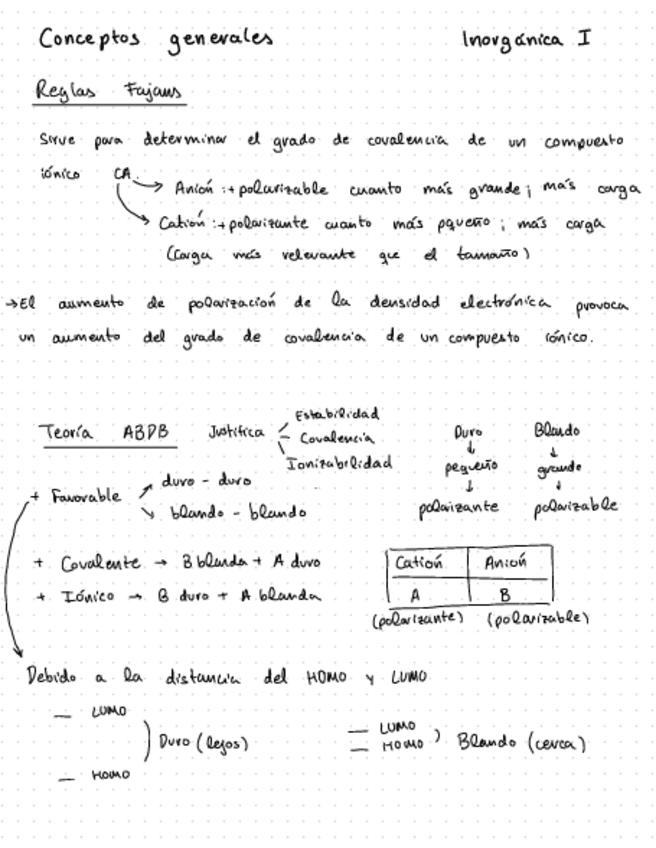 Conceptos generales Inorgánica I
Reglas Fajans
Sirve para determinar el grado de covalencia de un compuesto
iónico CA.
Anión : + polarizable cuanto más grande ; más carga
Catión : + polarizante cuanto más pqueño ; más carga
(Carga más relevante que el tamaño)
→ El aumento de polarización de la densidad electrónica provoca
un aumento del grado de covalencia de un compuesto iónico.
Teoría ABDB Justifica
Estabilidad
Covalencia
Ionizabilidad
Duro Blando
↓ ↓
pequeño grande
↓ ↓
polarizante polarizable
+ Favorable
duro - duro
blando - blando
+ Covalente → B blanda + A duro
+ Iónico → B duro + A blanda
Catión Anión
A B
(polarizante) (polarizable)
Debido a la distancia del HOMO y LUMO
— LUMO
Duro (lejos)
— HOMO
— LUMO
— HOMO
Blando (cerca)